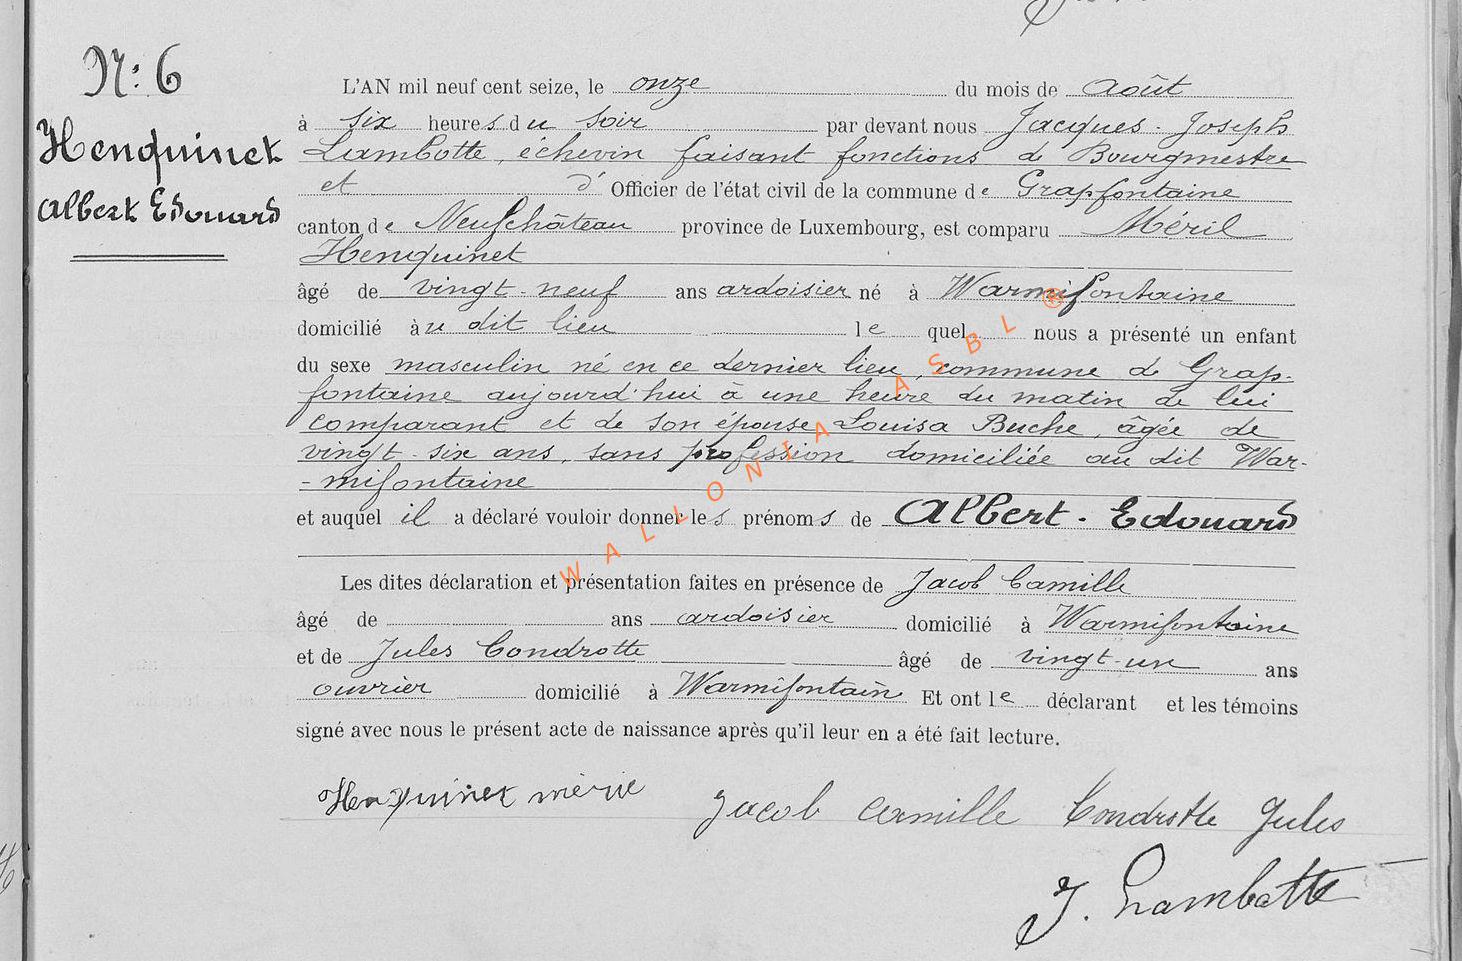 N: 6
Henquinet
Albert Edouard
L'AN mil neuf cent seize, le onze du mois de Août
à six heures du soir par devant nous Jacques - Joseph
Lambotte, échevin faisant fonctions de Bourgmestre
et d' Officier de l'état civil de la commune de Grapfontaine
canton de Neufchâteau province de Luxembourg, est comparu Méril
Henquinet
âgé de vingt-neuf ans ardoisier né à Warmifontaine
domicilié au dit lieu lequel nous a présenté un enfant
du sexe masculin né en ce dernier lieu, commune de Grap-
fontaine aujourd'hui à une heure du matin de lui
comparant et de son épouse Louisa Buche, âgée de
vingt-six ans, sans profession domiciliée au dit War-
-mifontaine
et auquel il a déclaré vouloir donner les prénoms de Albert - Edouard
Les dites déclaration et présentation faites en présence de Jacob Camille
âgé de ans ardoisier domicilié à Warmifontaine
et de Jules Condrotte âgé de vingt-un ans
ouvrier domicilié à Warmifontain Et ont le déclarant et les témoins
signé avec nous le présent acte de naissance après qu'il leur en a été fait lecture.
Henquinet Jacob Camille Condrotte Jules
J. Lambotte
WALLONIA ASBL ®